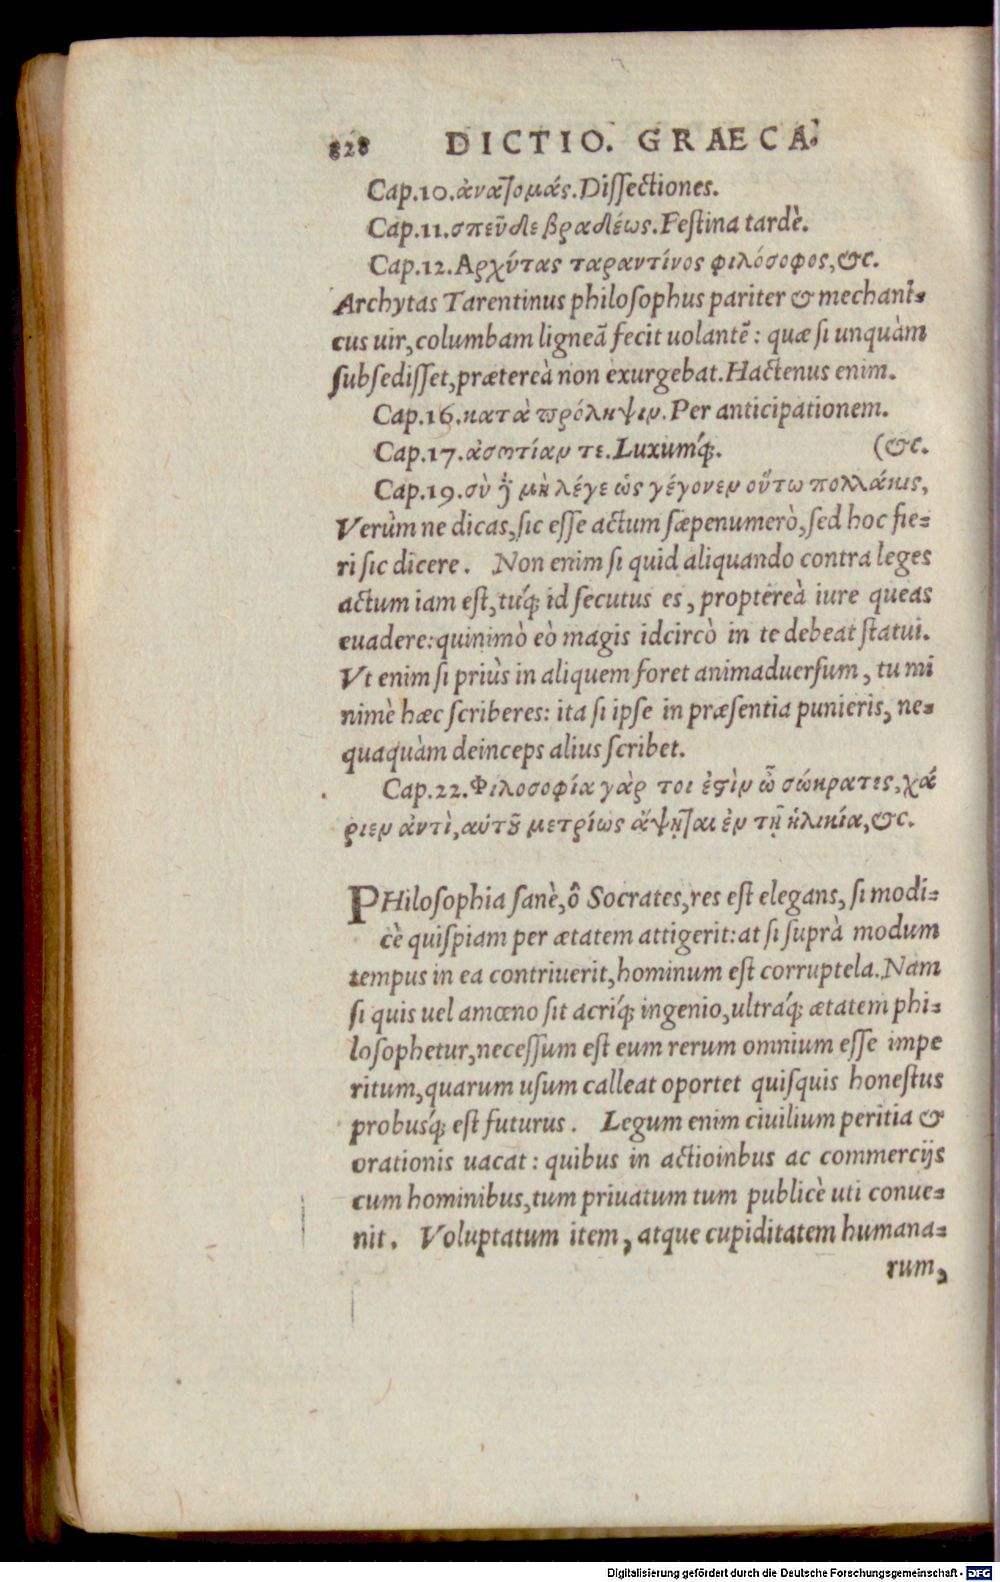 828 DICTIO. GRAECA.
Cap.10.ἀνατομάς.Dissectiones.
Cap.11.σπεῦδε βραδέως.Festina tardè.
Cap.12.Αρχύτας ταραντίνος φιλόσοφος,&c.
Archytas Tarentinus philosophus pariter & mechani-
cus uir,columbam ligneã fecit uolantẽ: quæ si unquàm
subsedisset,prætereà non exurgebat.Hactenus enim.
Cap.16.κατὰ πρόληψιν.Per anticipationem.
Cap.17.ἀσωτίαν τε.Luxumq́;. (&c.
Cap.19.σὺ δὲ μὴ λέγε ὡς γέγονεν οὕτω πολλάκις,
Verùm ne dicas,sic esse actum sæpenumerò,sed hoc fie-
ri sic dicere. Non enim si quid aliquando contra leges
actum iam est,tuq́; id secutus es, proptereà iure queas
euadere:quinimò eò magis idcircò in te debeat statui.
Vt enim si priùs in aliquem foret animaduersum, tu mi
nimè hæc scriberes: ita si ipse in præsentia punieris, ne-
quaquàm deinceps alius scribet.
Cap.22.Φιλοσοφία γὰρ τοι ἐστὶν ὦ σώκρατες,χά
ριεν ἀντὶ,αὐτοῦ μετρίως ἅψηται ἐν τῇ ἡλικία,&c.
PHilosophia sanè,ô Socrates,res est elegans, si modi-
cè quispiam per ætatem attigerit:at si suprà modum
tempus in ea contriuerit,hominum est corruptela.Nam
si quis uel amœno sit acriq́; ingenio,ultraq́; ætatem phi-
losophetur,necessum est eum rerum omnium esse impe
ritum,quarum usum calleat oportet quisquis honestus
probusq́; est futurus. Legum enim ciuilium peritia &
orationis uacat: quibus in actioinbus ac commercijs
cum hominibus,tum priuatum tum publicè uti conue-
nit. Voluptatum item, atque cupiditatem humana-
rum,
Digitalisierung gefördert durch die Deutsche Forschungsgemeinschaft - DFG